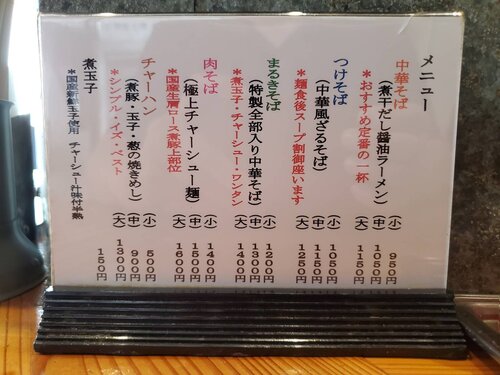 メニュー
中華そば (小) 950円
(煮干だし醤油ラーメン) (中) 1050円
*おすすめ定番の一杯 (大) 1150円
つけそば (小) 1050円
(中華風ざるそば) (中) 1150円
*麺食後スープ割御座います (大) 1250円
まるきそば (小) 1200円
(特製全部入り中華そば) (中) 1300円
*煮玉子・チャーシュー・ワンタン (大) 1400円
肉そば (小) 1400円
(極上チャーシュー麺) (中) 1500円
*国産生肩ロース煮豚上部位 (大) 1600円
チャーハン (小) 500円
(煮豚・玉子・葱の焼きめし) (中) 900円
*シンプル・イズ・ベスト (大) 1300円
煮玉子 150円
*国産新鮮玉子使用 チャーシュー汁味付半熟